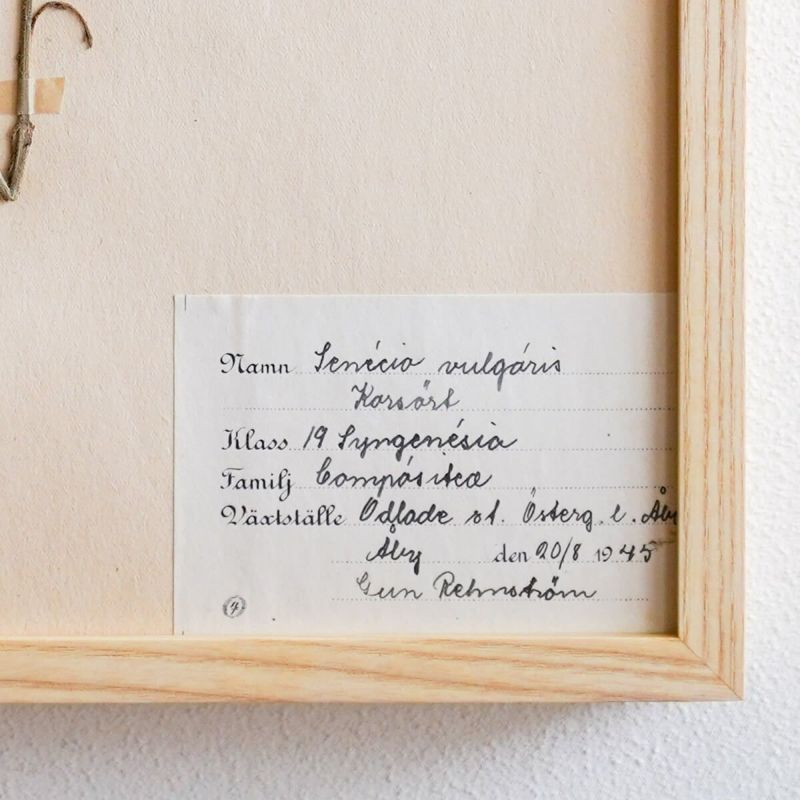 Namn Senécio vulgáris
Korsört
Klass 19 Syngenésia
Familj Compósitea
Växtställe Odlade st. Österg. l. Åby
Åby den 20/8 1945
Gun Rehnström